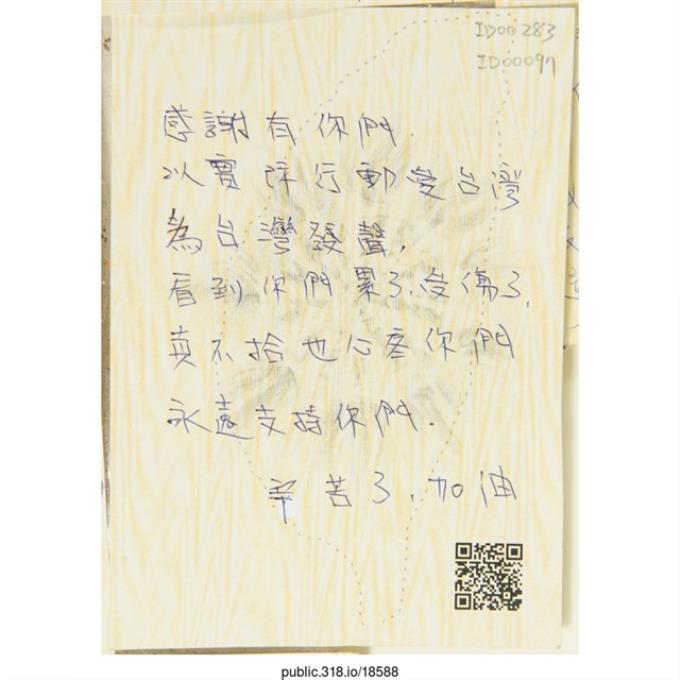 ID00283
ID00097
感謝有你們.
以實際行動愛台灣
為台灣發聲,
看到你們累了、受傷了,
真不捨也心疼你們
永遠支持你們.
辛苦了、加油
public.318.io/18588